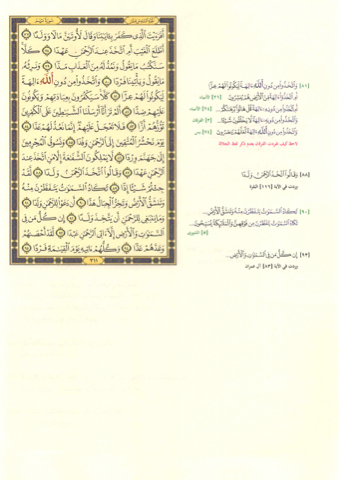 أَفَرَءَيْتَ ٱلَّذِى كَفَرَ بِـَٔايَٰتِنَا وَقَالَ لَأُوتَيَنَّ مَالًا وَوَلَدًا ٧٧
أَطَّلَعَ ٱلْغَيْبَ أَمِ ٱتَّخَذَ عِندَ ٱلرَّحْمَٰنِ عَهْدًا ٧٨ كَلَّا
سَنَكْتُبُ مَا يَقُولُ وَنَمُدُّ لَهُۥ مِنَ ٱلْعَذَابِ مَدًّا ٧٩ وَنَرِثُهُۥ
مَا يَقُولُ وَيَأْتِينَا فَرْدًا ٨٠ وَٱتَّخَذُوا۟ مِن دُونِ ٱللَّهِ ءَالِهَةً
لِّيَكُونُوا۟ لَهُمْ عِزًّا ٨١ كَلَّا سَيَكْفُرُونَ بِعِبَادَتِهِمْ وَيَكُونُونَ
عَلَيْهِمْ ضِدًّا ٨٢ أَلَمْ تَرَ أَنَّآ أَرْسَلْنَا ٱلشَّيَٰطِينَ عَلَى ٱلْكَٰفِرِينَ
تَؤُزُّهُمْ أَزًّا ٨٣ فَلَا تَعْجَلْ عَلَيْهِمْ إِنَّمَا نَعُدُّ لَهُمْ عَدًّا ٨٤
يَوْمَ نَحْشُرُ ٱلْمُتَّقِينَ إِلَى ٱلرَّحْمَٰنِ وَفْدًا ٨٥ وَنَسُوقُ ٱلْمُجْرِمِينَ
إِلَىٰ جَهَنَّمَ وِرْدًا ٨٦ لَّا يَمْلِكُونَ ٱلشَّفَٰعَةَ إِلَّا مَنِ ٱتَّخَذَ عِندَ
ٱلرَّحْمَٰنِ عَهْدًا ٨٧ وَقَالُوا۟ ٱتَّخَذَ ٱلرَّحْمَٰنُ وَلَدًا ٨٨ لَّقَدْ
جِئْتُمْ شَيْـًٔا إِدًّا ٨٩ تَكَادُ ٱلسَّمَٰوَٰتُ يَتَفَطَّرْنَ مِنْهُ
وَتَنشَقُّ ٱلْأَرْضُ وَتَخِرُّ ٱلْجِبَالُ هَدًّا ٩٠ أَن دَعَوْا۟ لِلرَّحْمَٰنِ وَلَدًا ٩١
وَمَا يَنۢبَغِى لِلرَّحْمَٰنِ أَن يَتَّخِذَ وَلَدًا ٩٢ إِن كُلُّ مَن فِى
ٱلسَّمَٰوَٰتِ وَٱلْأَرْضِ إِلَّآ ءَاتِى ٱلرَّحْمَٰنِ عَبْدًا ٩٣ لَّقَدْ أَحْصَىٰهُمْ
وَعَدَّهُمْ عَدًّا ٩٤ وَكُلُّهُمْ ءَاتِيهِ يَوْمَ ٱلْقِيَٰمَةِ فَرْدًا ٩٥
٣١١
[٨١] وَٱتَّخَذُوا۟ مِن دُونِ ٱللَّهِ ءَالِهَةً لِّيَكُونُوا۟ لَهُمْ عِزًّا
أَمِ ٱتَّخَذُوٓا۟ ءَالِهَةً مِّنَ ٱلْأَرْضِ هُمْ يُنشِرُونَ [٢١] الأنبياء
أَمِ ٱتَّخَذُوا۟ مِن دُونِهِۦٓ ءَالِهَةً قُلْ هَاتُوا۟ بُرْهَٰنَكُمْ... [٢٤] الأنبياء
وَٱتَّخَذُوا۟ مِن دُونِهِۦٓ ءَالِهَةً لَّا يَخْلُقُونَ شَيْـًٔا... [٣] الفرقان
وَٱتَّخَذُوا۟ مِن دُونِ ٱللَّهِ ءَالِهَةً لَّعَلَّهُمْ يُنصَرُونَ [٧٤] يس
[٨٨] وَقَالُوا۟ ٱتَّخَذَ ٱلرَّحْمَٰنُ وَلَدًا
وردت في الآية [١١٦] البقرة
[٩٠] تَكَادُ ٱلسَّمَٰوَٰتُ يَتَفَطَّرْنَ مِنْهُ وَتَنشَقُّ ٱلْأَرْضُ...
تَكَادُ ٱلسَّمَٰوَٰتُ يَتَفَطَّرْنَ مِن فَوْقِهِنَّ وَٱلْمَلَٰٓئِكَةُ يُسَبِّحُونَ...
[٥] الشورى
[٩٣] إِن كُلُّ مَن فِى ٱلسَّمَٰوَٰتِ وَٱلْأَرْضِ...
وردت في الآية [٨٣] آل عمران